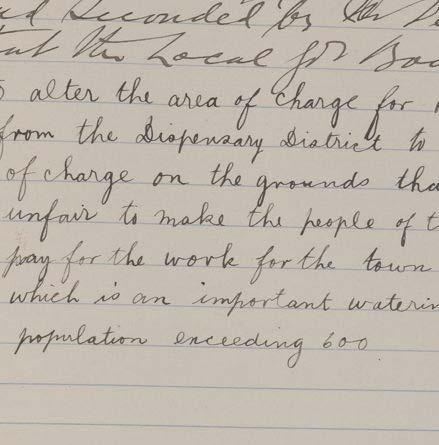 seconded by Mr
that the Local Gov Boa
alter the area of charge for
from the Dispensary District to
of charge on the grounds tha
unfair to make the people of t
pay for the work for the town
which is an important waterin
population exceeding 600